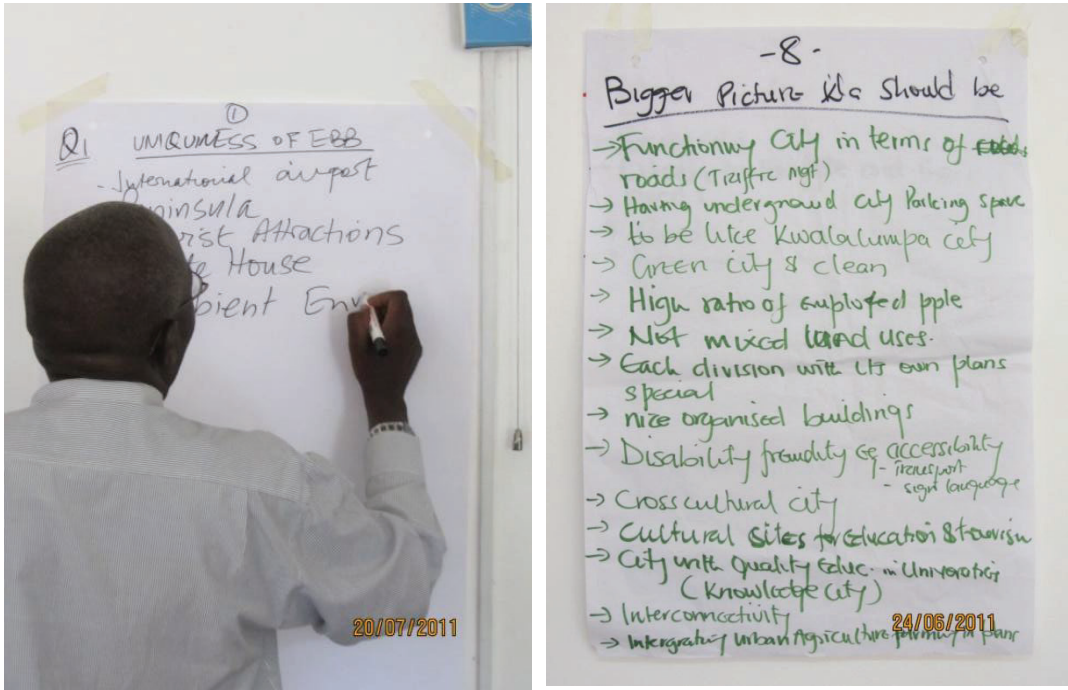 ①
Q1 UNIQUNESS OF EBB
- International airport
ninsula
rist Attractions
House
bient Env
20/07/2011
- 8 -
Bigger Picture K'la Should be
→ Functioning City in terms of
roads (Traffic mgt)
→ Having underground city Parking space
→ to be like Kwalalumpa city
→ Green city & clean
→ High ratio of employed pple
→ Not mixed land uses.
→ Each division with its own plans
special
→ nice organised buildings
→ Disability frendity eg accessibility
- Transport
- sign language
→ Cross cultural city
→ Cultural sites for Education & tourism
→ City with quality Educ. in Universities
(Knowledge city)
→ Interconnectivity
24/06/2011
→ Intergrating urban Agriculture farming in plans